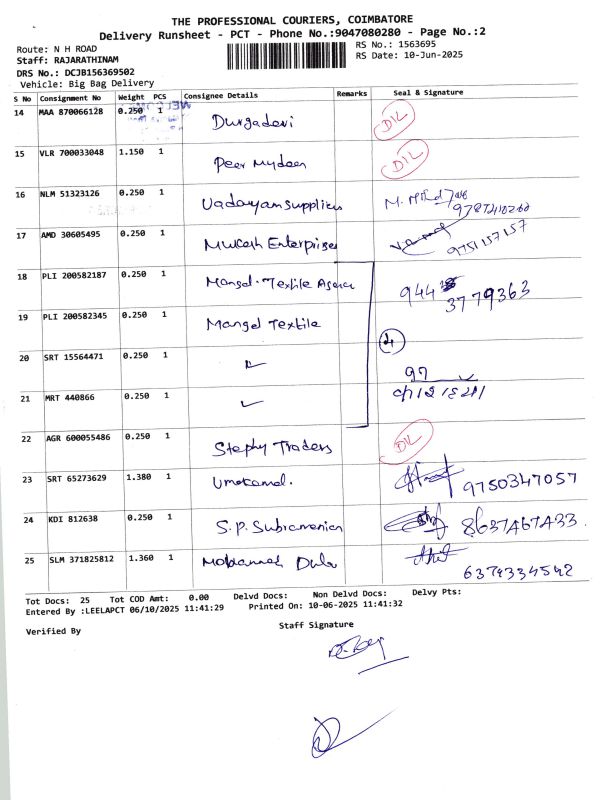 THE PROFESSIONAL COURIERS, COIMBATORE
Delivery Runsheet - PCT - Phone No.:9047080280 - Page No.:2
Route: N H ROAD
Staff: RAJARATHINAM
DRS No.: DCJB156369502
Vehicle: Big Bag Delivery
RS No.: 1563695
RS Date: 10-Jun-2025
S No Consignment No Weight PCS Consignee Details Remarks Seal & Signature
14 MAA 870066128 0.250 1 Durgadevi DIL
15 VLR 700033048 1.150 1 Peer Mydeen DIL
16 NLM 51323126 0.250 1
17 AMD 30605495 0.250 1 Mukesh Enterprises 9751157157
18 PLI 200582187 0.250 1 Mangal Textile 944 3779363
19 PLI 200582345 0.250 1 Mangal Textile
20 SRT 15564471 0.250 1 4
21 MRT 440866 0.250 1 97
22 AGR 600055486 0.250 1 Stephy Traders DIL
23 SRT 65273629 1.380 1 Umakamal. 9750347057
24 KDI 812638 0.250 1 S.P. Subramanian 8637467433
25 SLM 371825812 1.360 1 6374334542
Tot Docs: 25 Tot COD Amt: 0.00 Delvd Docs: Non Delvd Docs: Delvy Pts:
Entered By :LEELAPCT 06/10/2025 11:41:29 Printed On: 10-06-2025 11:41:32
Verified By Staff Signature